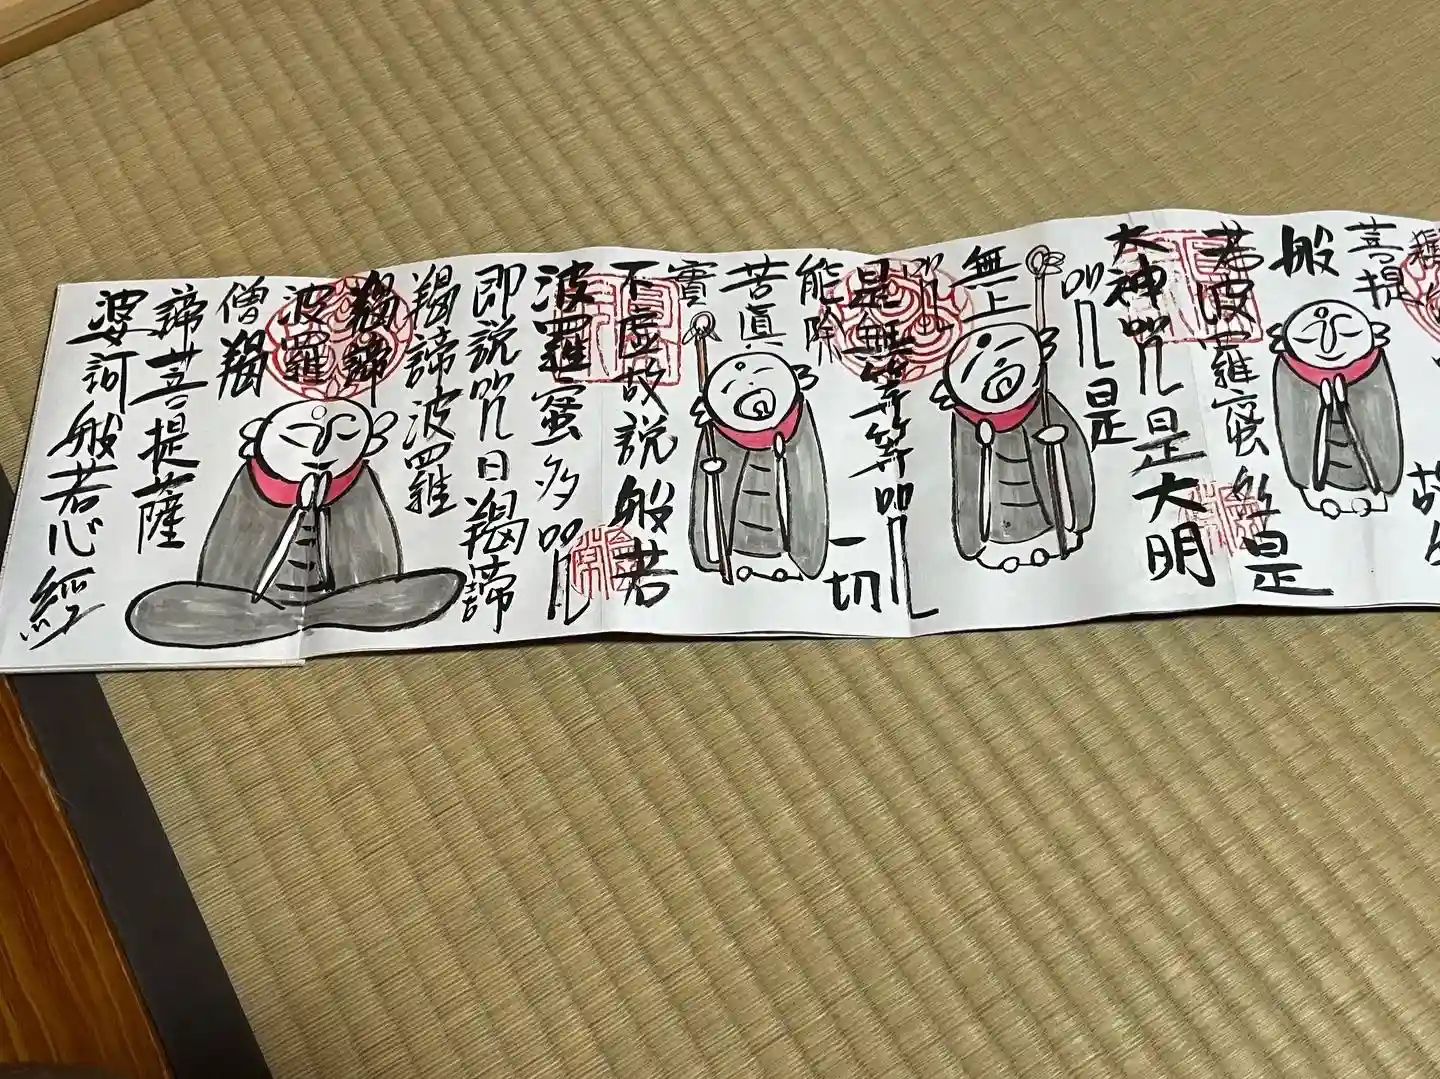 菩提
般
若波羅蜜
故是
大神咒是大明
咒是
無上
咒
是無等等咒
能除
一切
苦眞
實
不虚故説般若
波羅蜜多咒
即説咒曰羯諦
羯諦波羅
羯諦
波羅
僧羯
諦菩提薩
婆訶般若心經